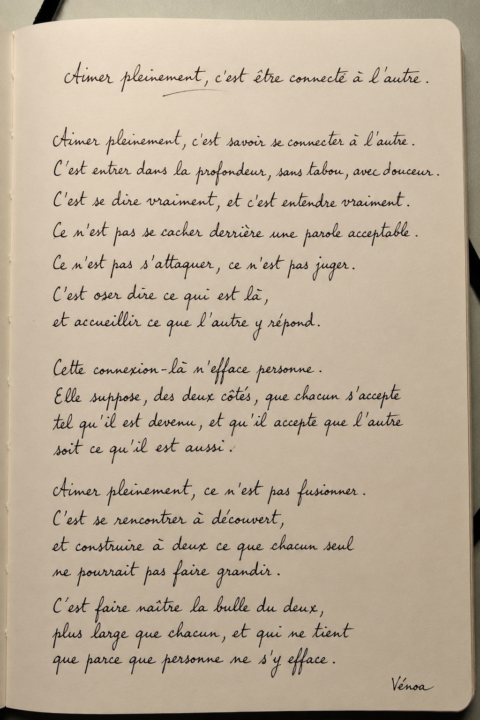 Aimer pleinement, c'est être connecté à l'autre.
Aimer pleinement, c'est savoir se connecter à l'autre.
C'est entrer dans la profondeur, sans tabou, avec douceur.
C'est se dire vraiment, et c'est entendre vraiment.
Ce n'est pas se cacher derrière une parole acceptable.
Ce n'est pas s'attaquer, ce n'est pas juger.
C'est oser dire ce qui est là,
et accueillir ce que l'autre y répond.
Cette connexion-là n'efface personne.
Elle suppose, des deux côtés, que chacun s'accepte
tel qu'il est devenu, et qu'il accepte que l'autre
soit ce qu'il est aussi.
Aimer pleinement, ce n'est pas fusionner.
C'est se rencontrer à découvert,
et construire à deux ce que chacun seul
ne pourrait pas faire grandir.
C'est faire naître la bulle du deux,
plus large que chacun, et qui ne tient
que parce que personne ne s'y efface.
Vénoa